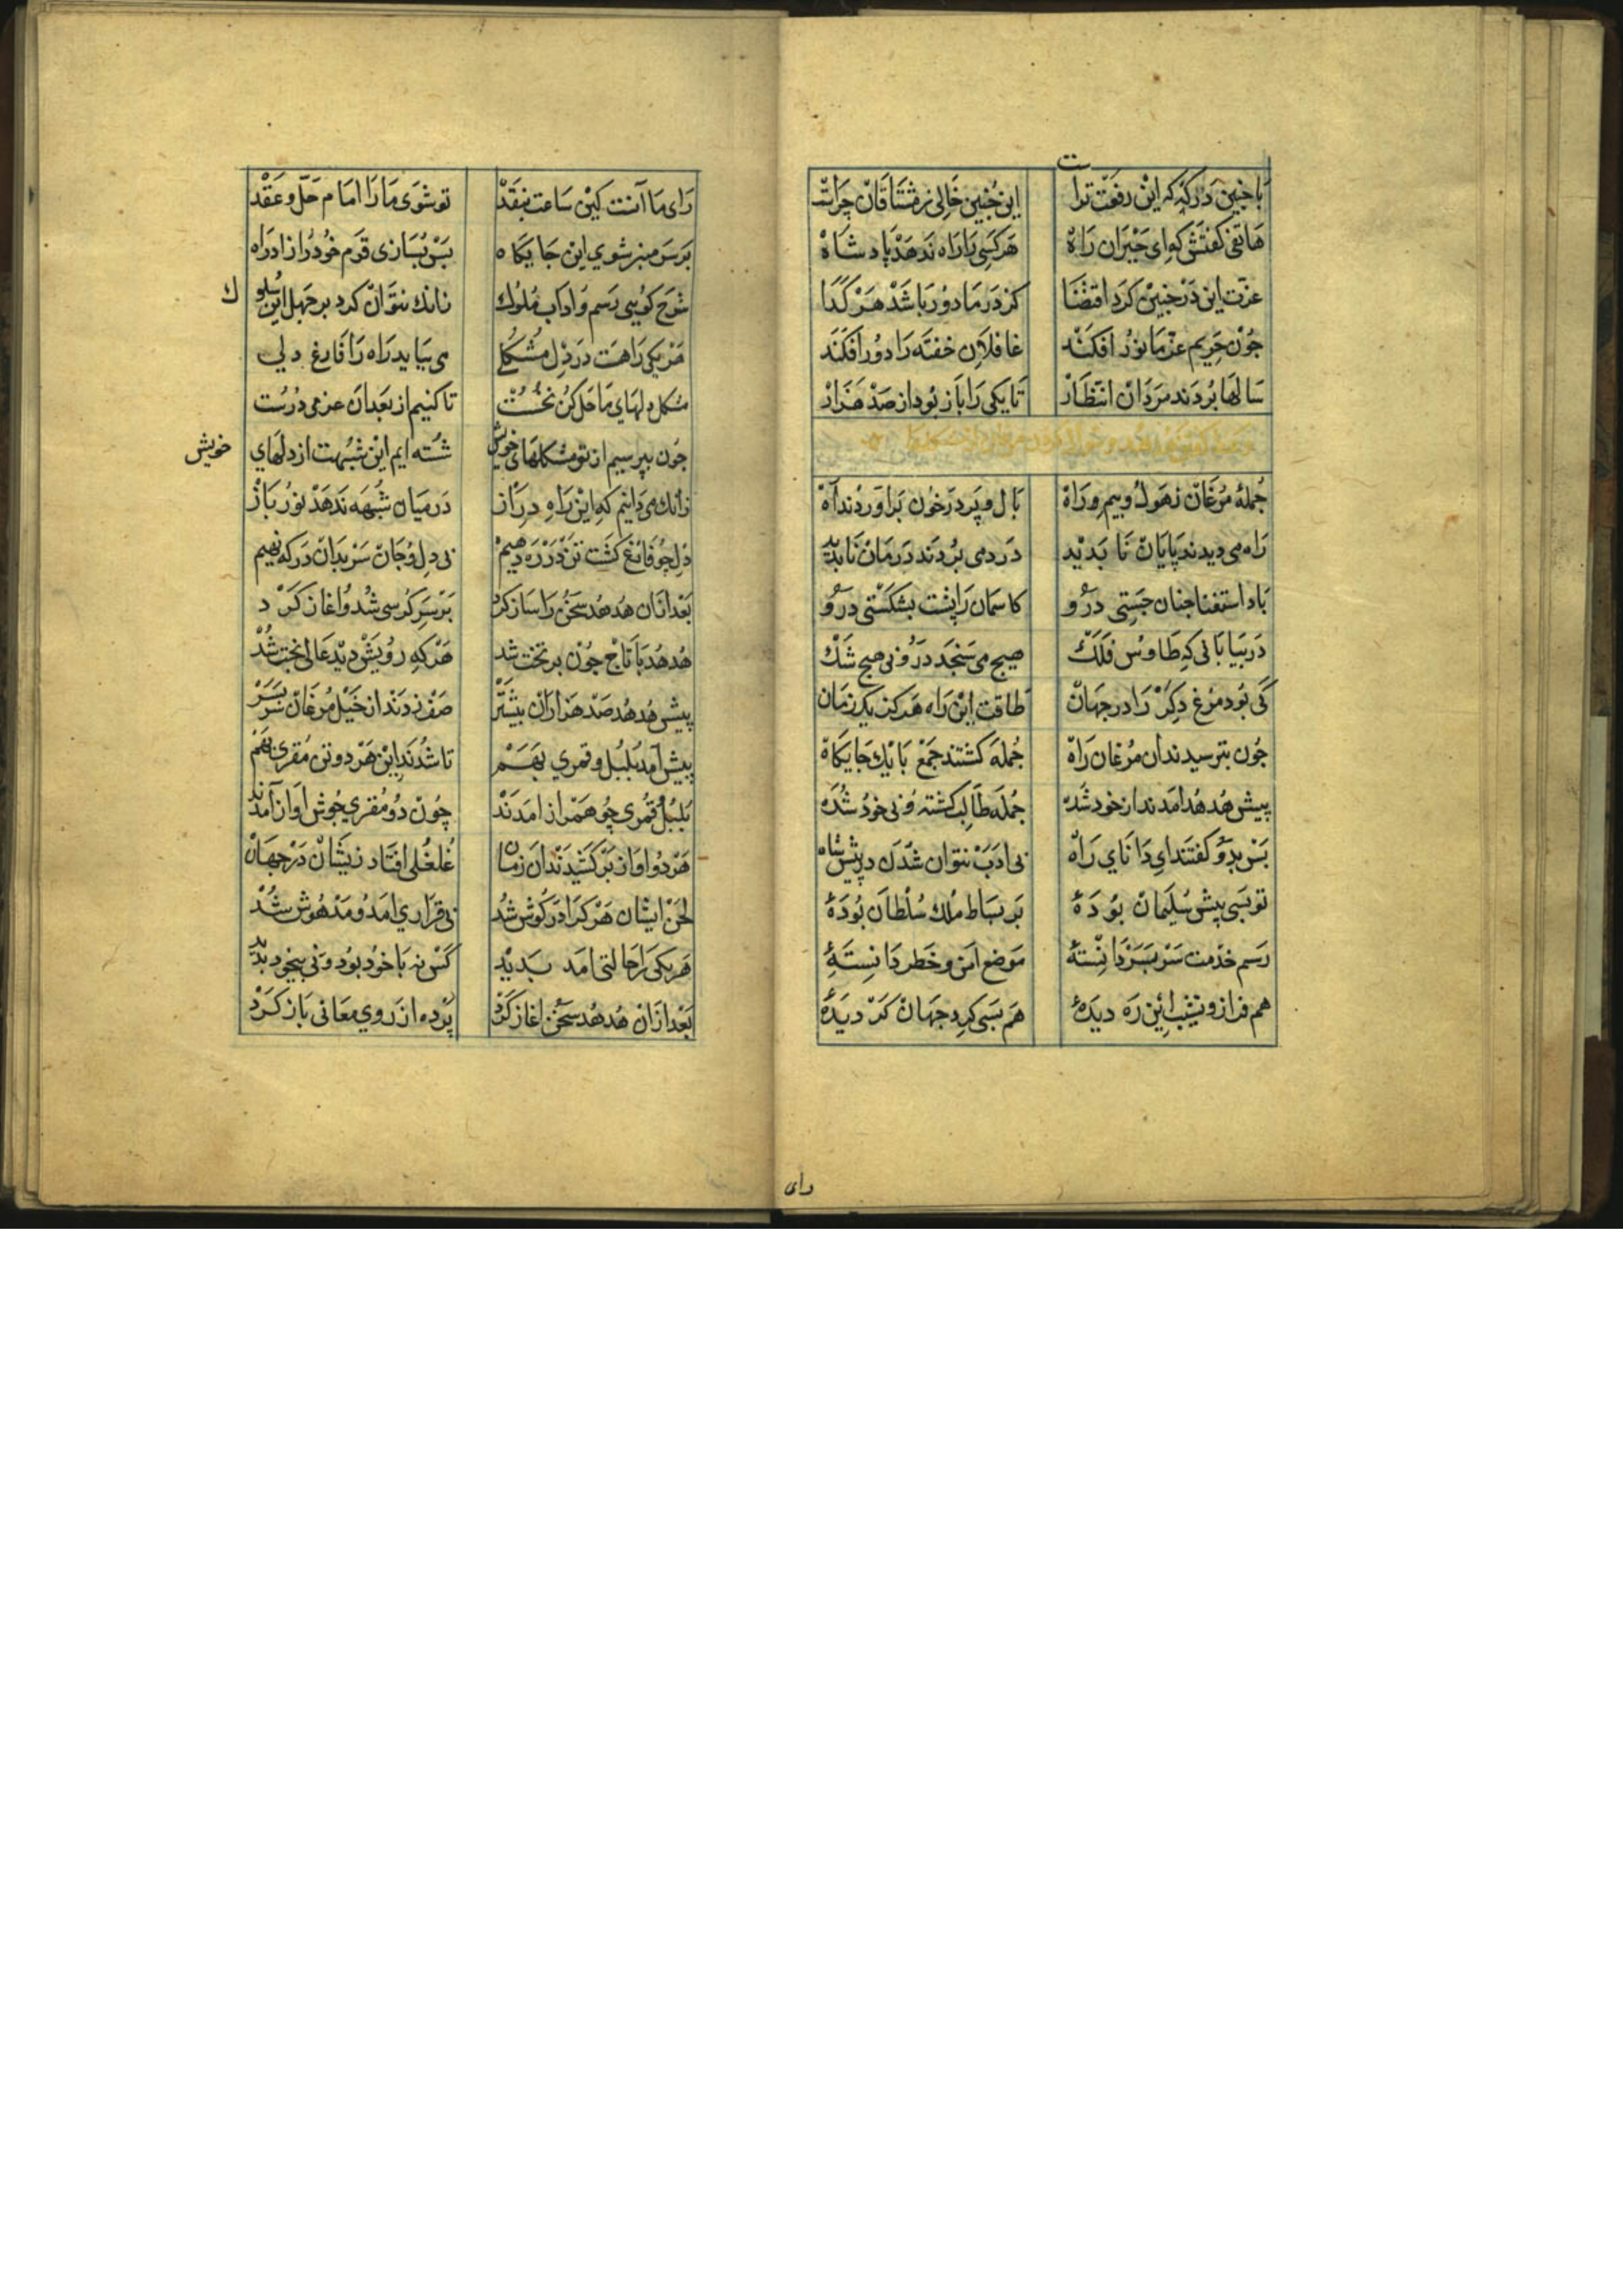 با جنین درکه که این رفعت تراست این جنین خالی ز مشتاقان چراست
هاتفی کفتش که ای حیران راه هر کسی را راه ندهد پادشاه
عزت این در جنین کرد اقتضا کز در ما دور باشد هر کدا
جون حریم عز ما نور افکند غافلان خفته را دور افکند
سالها بردند مردان انتظار تا یکی را باز بود از صد هزار
جملهٔ مرغان ز هول و بیم و راه بال و پر در خون برآوردند آه
راه می دیدند پایان نا بدید درد می بردند درمان نا بدید
باد استغنا جنان جستی درو کاسمان را پشت بشکستی درو
در بیابانی که طاوس فلک هیچ می سنجد درو نی هیچ شک
کی بود مرغ دکر را در جهان طاقت این راه هرکز یک زمان
جون بترسیدند ان مرغان راه جمله کشتند جمع با یک جایکاه
پیش هدهد امدند از خود شده جمله طالب کشته و نی خود شده
بس بدو کفتند ای دانای راه بی ادب نتوان شدن در پیش شاه
تو بسی پیش سلیمان بودهٔ بر بساط ملک سلطان بودهٔ
رسم خدمت سر بسر دانستهٔ موضع امن و خطر دانستهٔ
هم فراز و نشیب این ره دیدهٔ هم بسی کرد جهان کردیدهٔ
رای
رای ما آنست کین ساعت بنقد تو شوی ما را امام حل و عقد
بر سر منبر شوی این جایکاه بس بسازی قوم خود را زاد راه
شرح کویی رسم و اداب ملوک زانک نتوان کرد بر جهل این سلوک
هر یکی را هست در دل مشکلی می بباید راه را فارغ دلی
مشکل دلهای ما حل کن نخست تا کنیم از بعد ان عزمی درست
جون بپرسیم از تو مشکلهای خویش شسته ایم این شبهت از دلهای خویش
زانک می دانیم که این راه دراز در میان شبهه ندهد نور باز
دل جو فارغ کشت تن در ره دهیم بی دل و جان سر بدان درکه نهیم
بعد ازان هدهد سخن را ساز کرد بر سر کرسی شد و اغاز کرد
هدهد با تاج جون بر تخت شد هر که رویش دید عالی بخت شد
پیش هدهد صد هزاران بیشتر صف زدند از خیل مرغان سر بسر
پیش آمد بلبل و قمری بهم تا شدند این هر دو تن مقری بهم
بلبل و قمری چو همراز امدند چون دو مقری خوش اواز آمدند
هر دو اواز برکشیدند ان زمان غلغلی افتاد زیشان در جهان
لحن ایشان هر کرا در کوش شد بی قراری امد و مدهوش شد
هر یکی را حالتی امد بدید کس نه با خود بود و نی بیخود بدید
بعد ازان هدهد سخن اغاز کرد پرده از روی معانی باز کرد